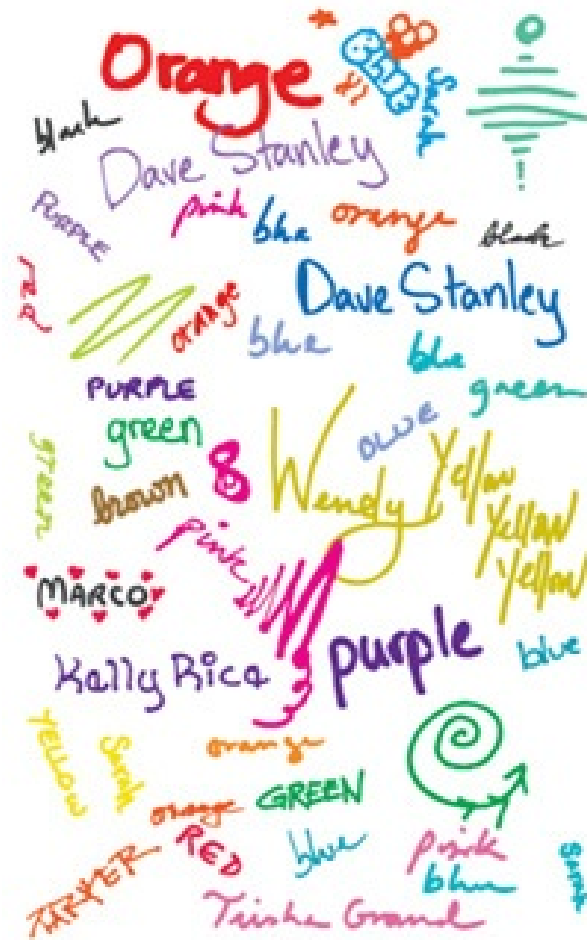 Orange
BLUE
Sarah
black
Dave Stanley
PURPLE
pink
blue
orange
black
red
orange
Dave Stanley
blue
blue
green
PURPLE
green
8
Wendy
BLUE
Yellow
Yellow
Yellow
green
brown
pink
MARCO
Kelly Rice
purple
blue
YELLOW
Sarah
orange
orange
GREEN
RED
blue
pink
blue
Sarah
Trisha Grand